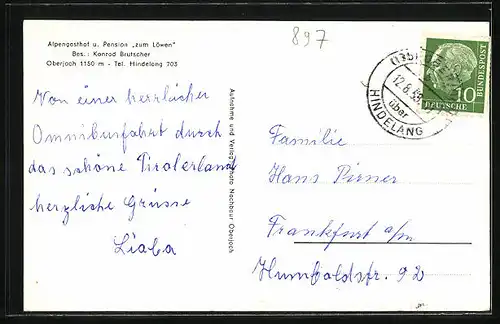 Alpengasthof u. Pension „zum Löwen"
Bes.: Konrad Brutscher
Oberjoch 1150 m - Tel. Hindelang 703
897
Von einer herrlichen
Omnibusfahrt durch
das schöne Tirolerland
herzliche Grüsse
Liaba
Aufnahme und Verlag Photo Nachbaur Oberjoch
HINDELANG
über
12.8.58
10
DEUTSCHE
BUNDESPOST
Familie
Hans Pirner
Frankfurt a/m
Humboldstr. 92